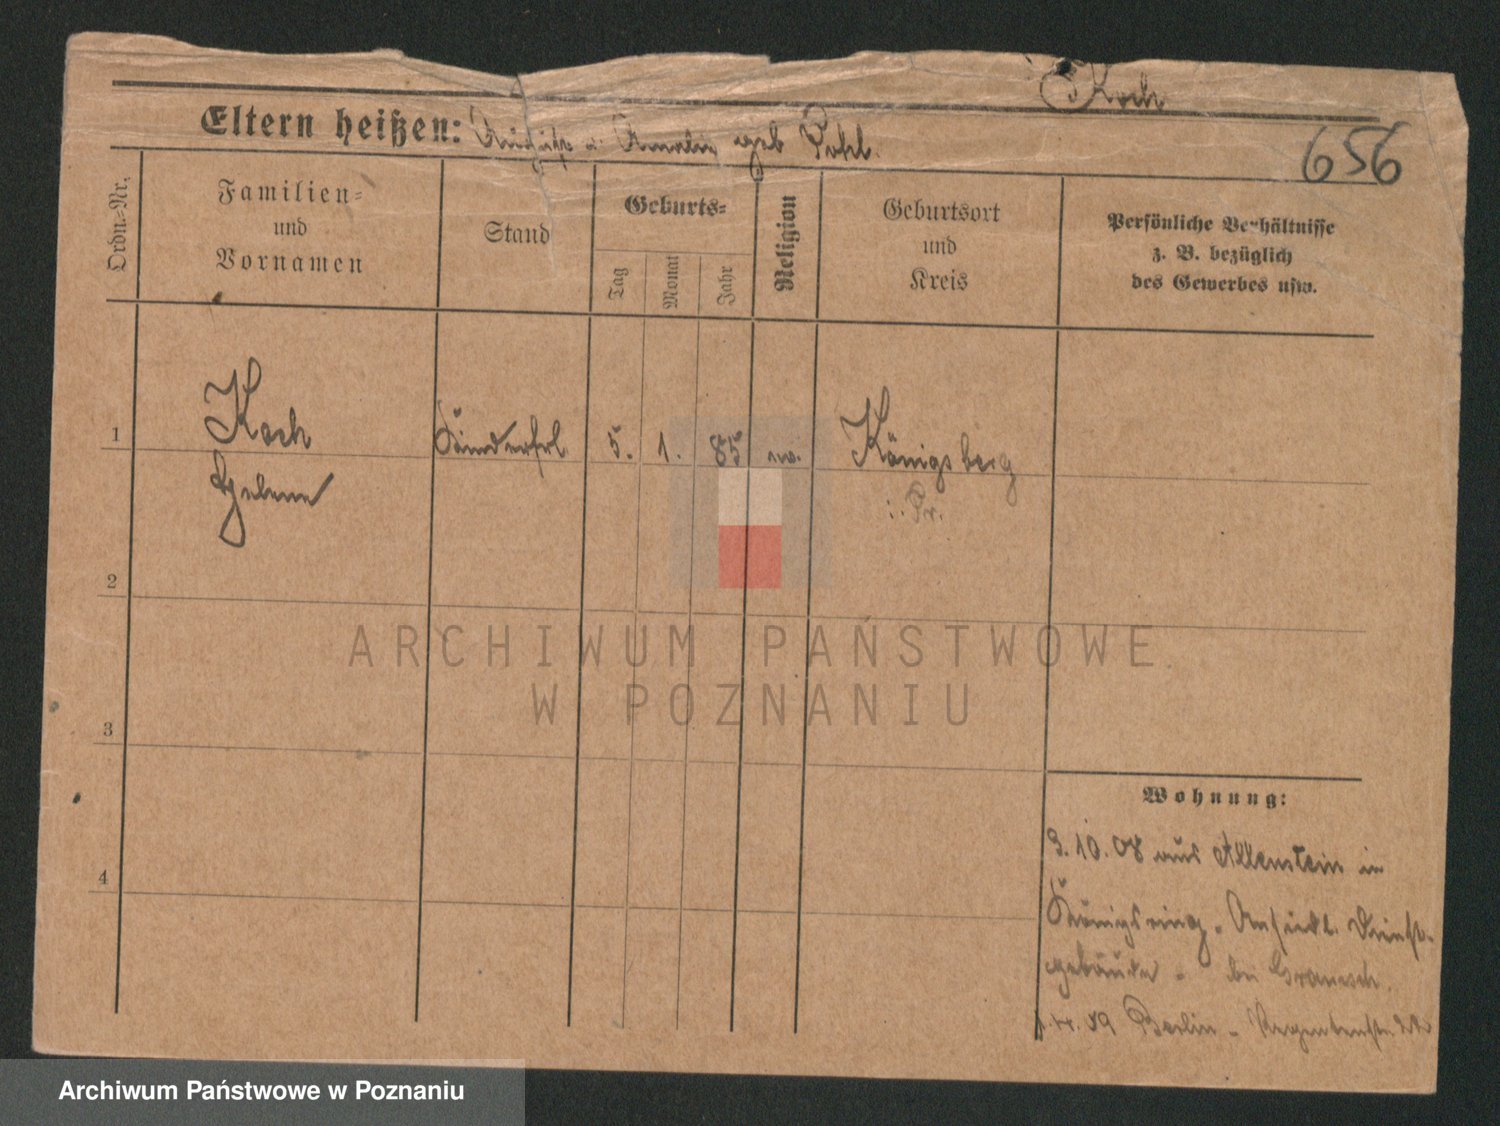 Koch
Eltern heißen: August u. Amalie geb Pohl.
656
Ordn.=Nr.
Familien=
und
Vornamen
Stand
Geburts=
Tag
Monat
Jahr
Religion
Geburtsort
und
Kreis
Persönliche Verhältnisse
z. B. bezüglich
des Gewerbes usw.
1
Koch
Helene
Kinderfrl.
5.
1.
85
ev.
Königsberg
i. Pr.
2
3
4
Wohnung:
3.10.08 aus Allenstein in
Königsring - Ansiedl. Dienst-
gebäude - bei
09 Berlin -
ARCHIWUM PAŃSTWOWE
W POZNANIU
Archiwum Państwowe w Poznaniu